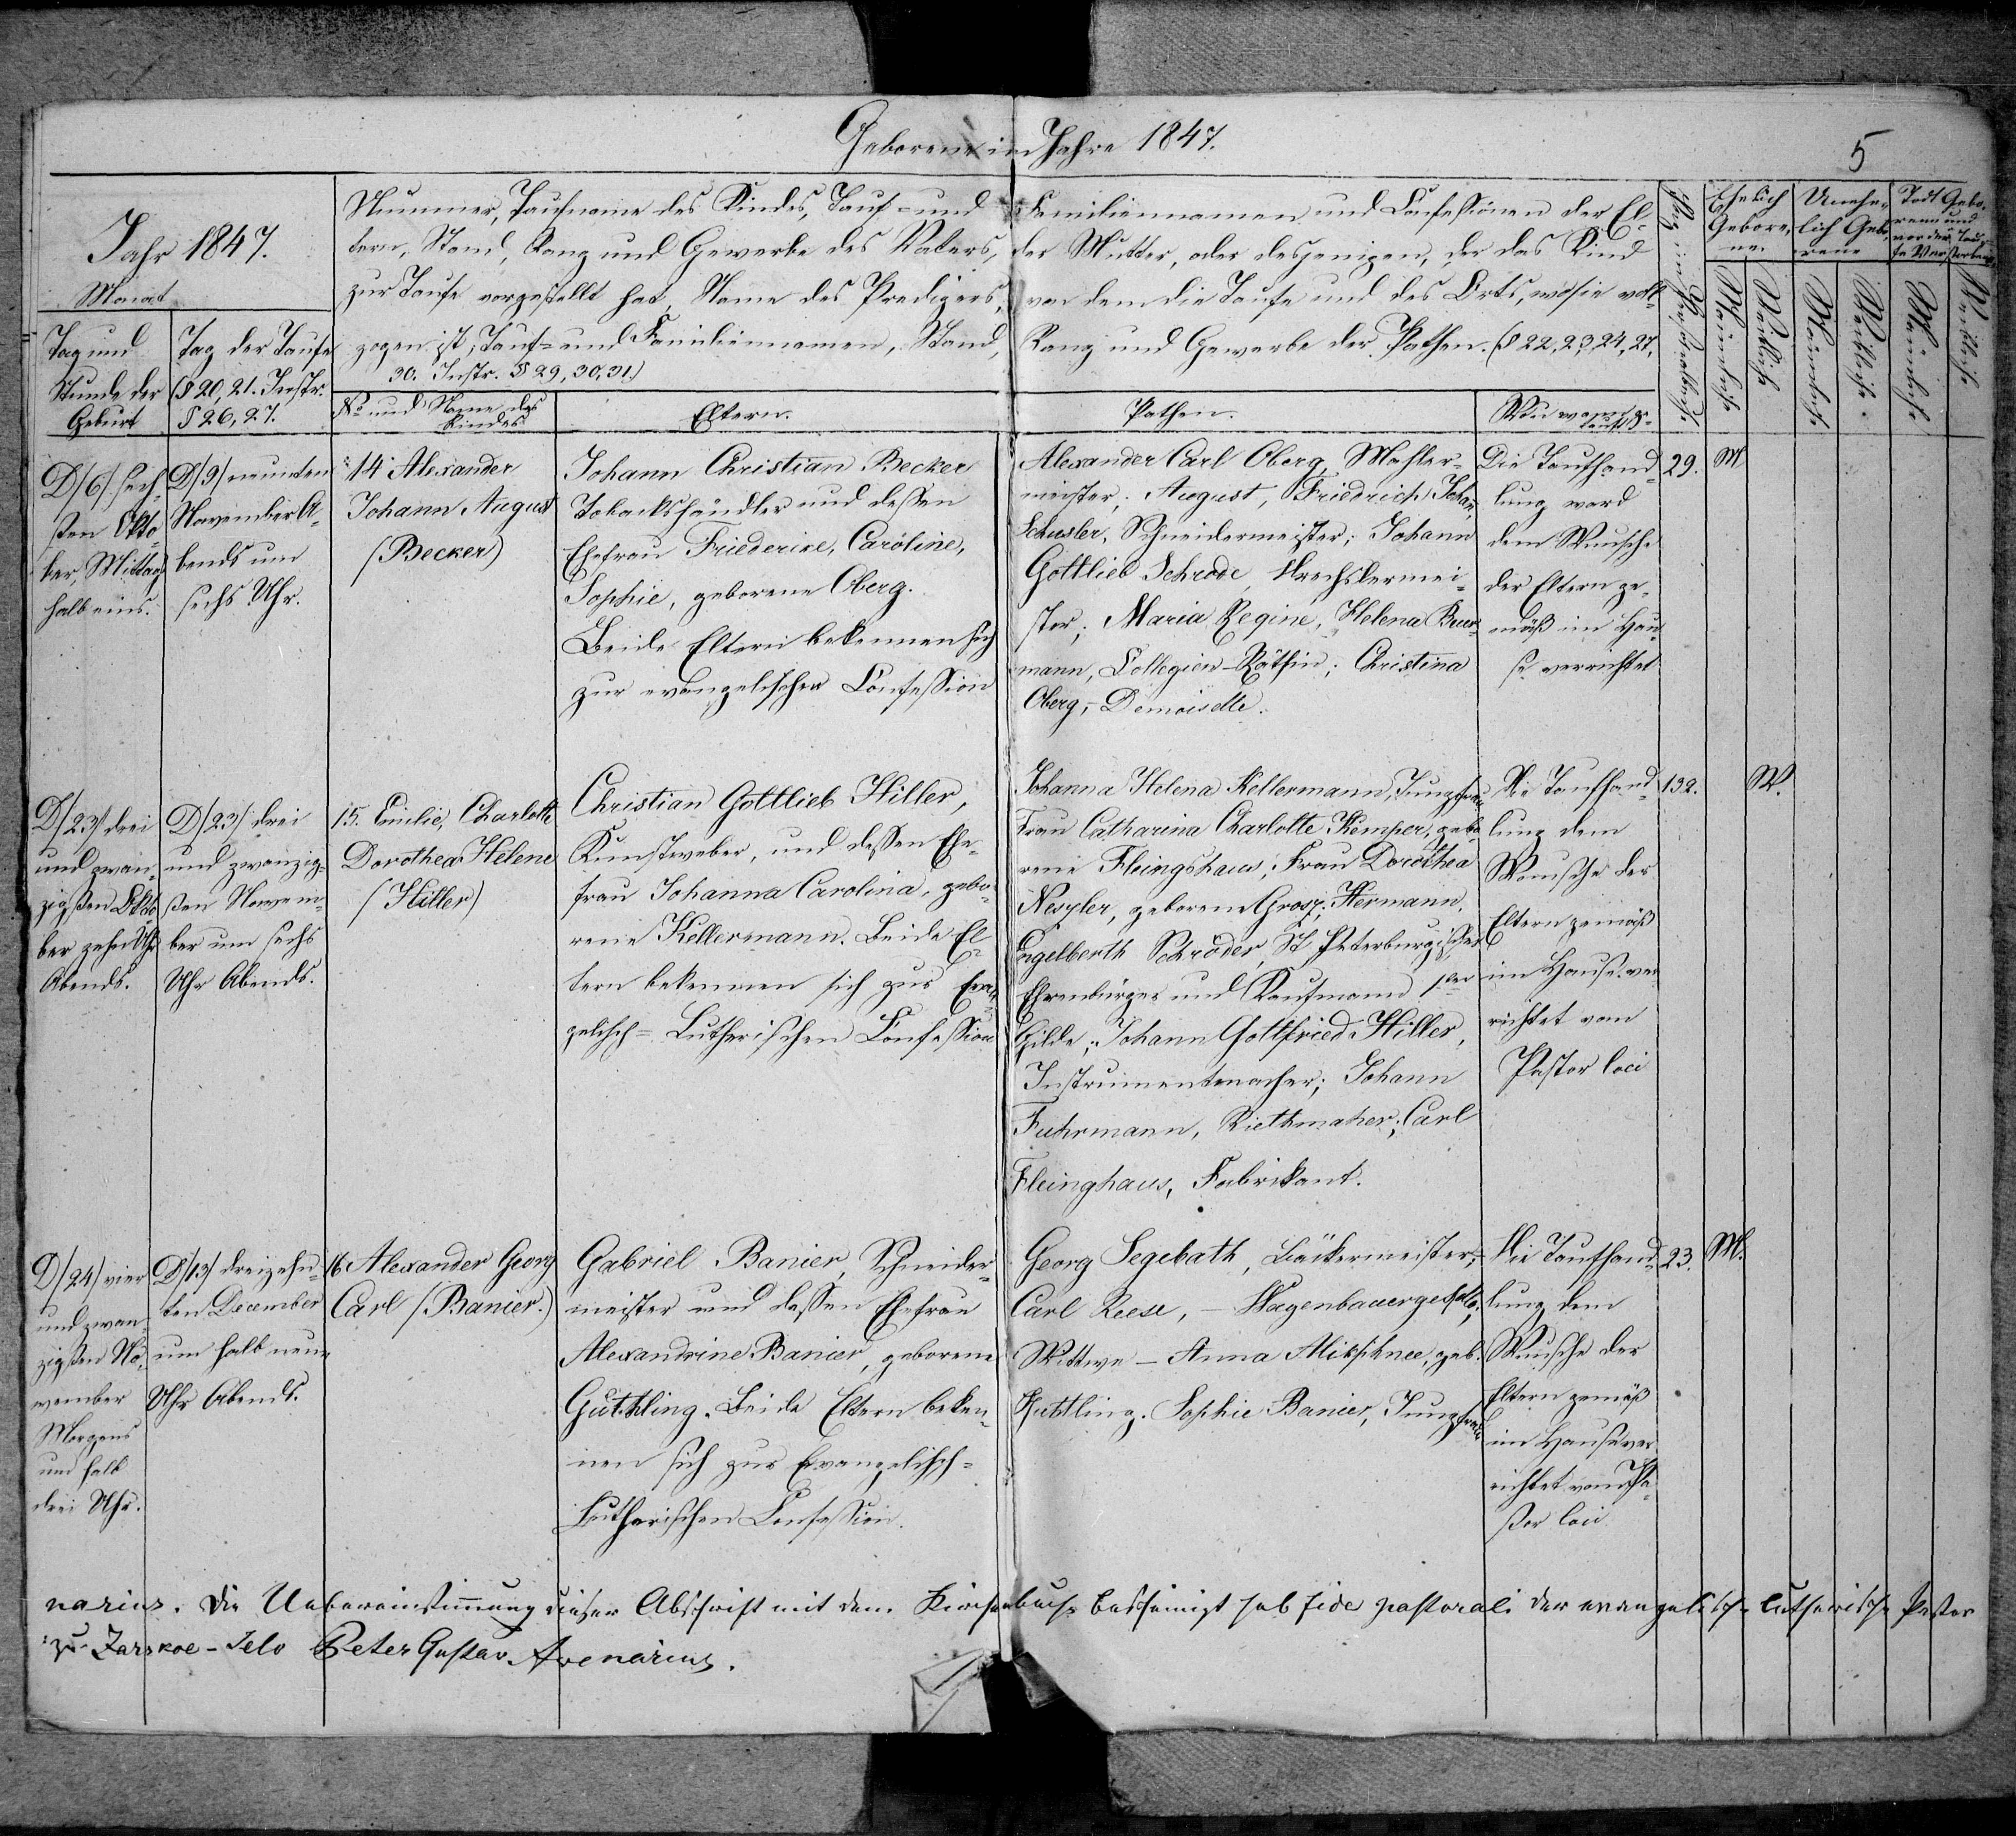 Geborene im Jahre 1847.
5
Jahr 1847.
Monat
Tag und
Stunde der
Geburt
Tag der Taufe
(§ 20, 21. Instr.
§ 26, 27.
Nummer, Taufname des Kindes, Tauf- und Familiennamen und Confessionen der El-
tern, Stand, Rang und Gewerbe des Vaters, der Mutter, oder desjenigen, der das Kind
zur Taufe vorgestellt hat, Name des Predigers, von dem die Taufe und des Orts, wo sie voll-
zogen ist, Tauf- und Familiennamen, Stand, Rang und Gewerbe der Pathen. (§ 22, 23, 24, 27,
30. Instr. § 29, 30, 31.)
No und Name des
Kindes
Eltern.
Pathen.
Ehelich
Gebore-
ne.
Unehe-
lich Gebo-
rene
Todt Gebo-
rene und
vor der Tau-
fe Verstorbene
Männliche
Weibliche
Männliche
Weibliche
Männliche
Weibliche
D/6/ sech-
sten Okto-
ber, Mittags
halb eins.
D/9/ neunten
November A-
bends um
sechs Uhr.
14 Alexander
Johann August
(Becker)
Johann Christian Becker
Tobackshändler und dessen
Ehefrau Friederike, Caroline,
Sophie, geborene Oberg.
Beide Eltern bekennen sich
zur evangelischen Confession
Alexander Carl Oberg, Mahler-
meister; August, Friedrich Johan
Schusler, Schneidermeister; Johann
Gottlieb Schrode, Drechslermei-
ster; Maria Regine, Helena
mann, Collegien-Räthin; Christina
Oberg, - Demoiselle.
Die Taufhand-
lung ward
dem Wunsche
der Eltern ge-
mäß im Hau-
se verrichtet
29.
M
D/23/ drei
und zwan-
zigsten Okto
ber zehn Uhr
Abends.
D/23/ drei
und zwanzig-
sten Novem-
ber um sechs
Uhr Abends.
15. Emilie, Charlotte
Dorothea Helene
(Hiller)
Christian Gottlieb Hiller,
Kunstweber, und dessen Ehe-
frau Johanna Carolina, gebo-
rene Kellermann. Beide El-
tern bekennen sich zur Evan-
gelisch-Lutherischen Confession
Johanna Helena Kellermann, Jungfrau
Frau Catharina Charlotte Kemper, gebo
rene Fleingshaus; Frau Dorothea
Neszler, geborene Grosz; Hermann,
Engelberth Schröder, St Peterburgischer
Ehrenbürger und Kaufmann 1ster
Gilde; Johann Gottfried Hiller,
Instrumentmacher; Johann
Fuhrmann, Riethmaher; Carl
Fleinghaus, Fabrikant.
Die Taufhand-
lung dem
Wunsche der
Eltern gemäß
im Hause ver
richtet vom
Pastor loci
132.
W.
D/24/ vier
und zwan-
zigsten No-
vember
Morgens
um halb
drei Uhr.
D/13/ dreizehn-
ten December
um halb neun
Uhr Abends.
16 Alexander Georg
Carl (Banier.)
Gabriel Banier, Schneider-
meister und dessen Ehefrau
Alexandrine Banier, geborene
Guthling. Beide Eltern beken-
nen sich zur Evangelisch-
Lutherischen Confession.
Georg Segebath, Bäckermeister;
Carl Reese, - Wagenbauergeselle;
Wittwe - Anna, geb.
Guthling. Sophie Banier, Jungfrau
Die Taufhand-
lung dem
Wunsche der
Eltern gemäß
im Hause ver
richtet vom Pa-
stor loci
23.
M.
narius. Die Uebereinstimmung dieser Abschrift mit dem Kirchenbuche bescheinigt sub fide pastorali der evangelisch-lutherische Pastor
zu Zarskoe-Selo Peter Gustav Avenarius.